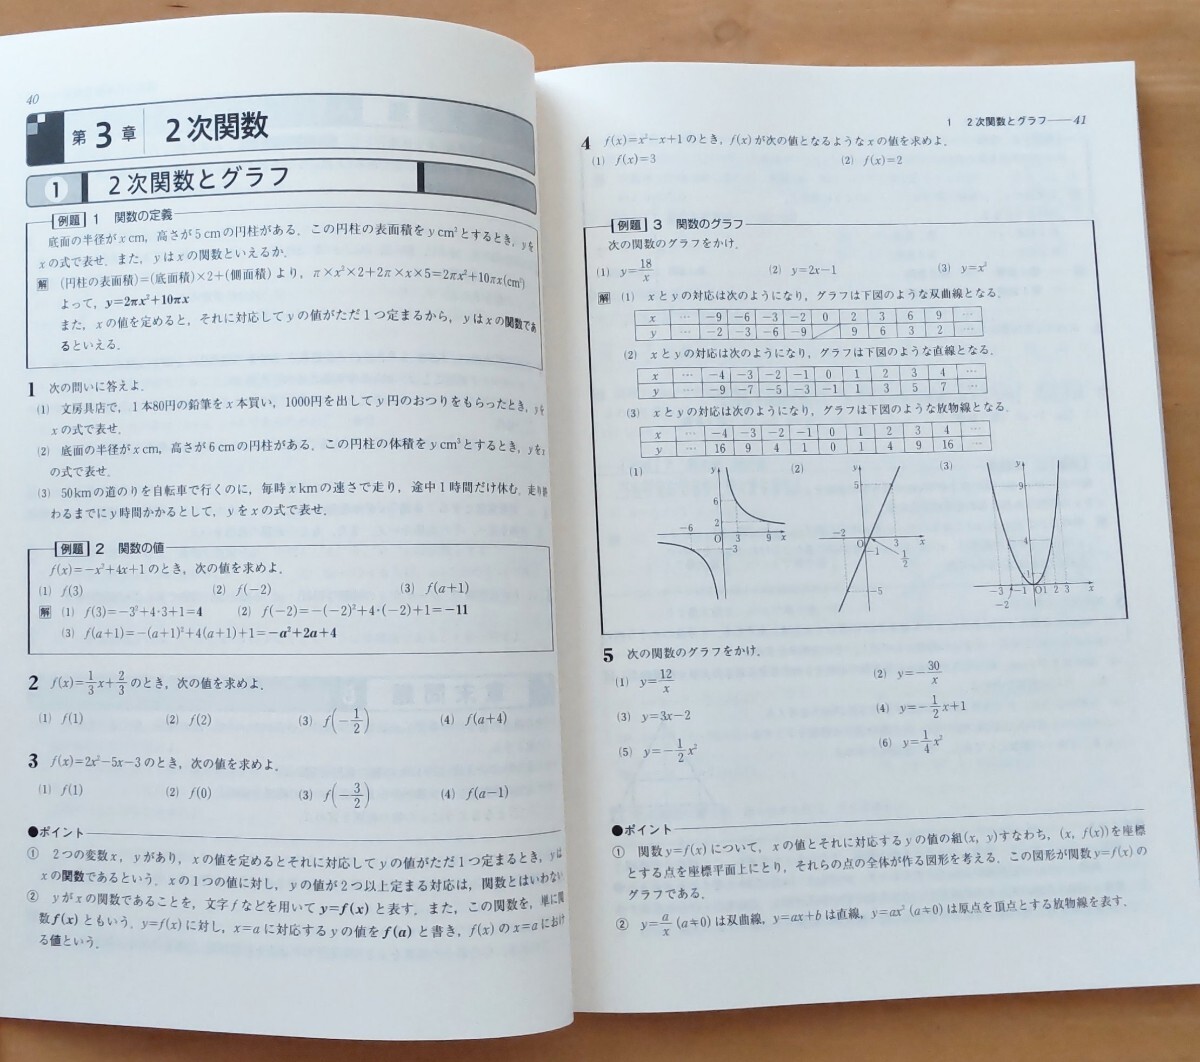 40
第3章 2次関数
1 2次関数とグラフ
例題 1 関数の定義
底面の半径がx cm，高さが5cmの円柱がある．この円柱の表面積をy cm²とするとき，yを
xの式で表せ．また，yはxの関数といえるか．
解 (円柱の表面積)=(底面積)×2+(側面積)より，π×x²×2+2π×x×5=2πx²+10πx(cm²)
よって，y=2πx²+10πx
また，xの値を定めると，それに対応してyの値がただ1つ定まるから，yはxの関数であ
るといえる．
1 次の問いに答えよ．
(1) 文房具店で，1本80円の鉛筆をx本買い，1000円を出してy円のおつりをもらったとき，yを
xの式で表せ．
(2) 底面の半径がx cm，高さが6cmの円柱がある．この円柱の体積をy cm³とするとき，yをx
の式で表せ．
(3) 50kmの道のりを自転車で行くのに，毎時x kmの速さで走り，途中1時間だけ休む．走り終
わるまでにy時間かかるとして，yをxの式で表せ．
例題 2 関数の値
f(x)=−x²+4x+1のとき，次の値を求めよ．
(1) f(3) (2) f(−2) (3) f(a+1)
解 (1) f(3)=−3²+4·3+1=4 (2) f(−2)=−(−2)²+4·(−2)+1=−11
(3) f(a+1)=−(a+1)²+4(a+1)+1=−a²+2a+4
2 f(x)=1/3x+2/3のとき，次の値を求めよ．
(1) f(1) (2) f(2) (3) f(−1/2) (4) f(a+4)
3 f(x)=2x²−5x−3のとき，次の値を求めよ．
(1) f(1) (2) f(0) (3) f(−3/2) (4) f(a−1)
●ポイント
① 2つの変数x，yがあり，xの値を定めるとそれに対応してyの値がただ1つ定まるとき，yは
xの関数であるという．xの1つの値に対し，yの値が2つ以上定まる対応は，関数とはいわない．
② yがxの関数であることを，文字fなどを用いてy=f(x)と表す．また，この関数を，単に関
数f(x)ともいう．y=f(x)に対し，x=aに対応するyの値をf(a)と書き，f(x)のx=aにおけ
る値という．
1 2次関数とグラフ──41
4 f(x)=x²−x+1のとき，f(x)が次の値となるようなxの値を求めよ．
(1) f(x)=3 (2) f(x)=2
例題 3 関数のグラフ
次の関数のグラフをかけ．
(1) y=18/x (2) y=2x−1 (3) y=x²
解 (1) xとyの対応は次のようになり，グラフは下図のような双曲線となる．
x … −9 −6 −3 −2 0 2 3 6 9 …
y … −2 −3 −6 −9 9 6 3 2 …
(2) xとyの対応は次のようになり，グラフは下図のような直線となる．
x … −4 −3 −2 −1 0 1 2 3 4 …
y … −9 −7 −5 −3 −1 1 3 5 7 …
(3) xとyの対応は次のようになり，グラフは下図のような放物線となる．
x … −4 −3 −2 −1 0 1 2 3 4 …
y … 16 9 4 1 0 1 4 9 16 …
(1) y 6 2 −6 O 3 9 x −3
(2) y 5 −2 O 3 x −1 1/2 −5
(3) y 9 4 1 −3 −1 O 1 2 3 x −2
5 次の関数のグラフをかけ．
(1) y=12/x (2) y=−30/x
(3) y=3x−2 (4) y=−1/2x+1
(5) y=−1/2x² (6) y=1/4x²
●ポイント
① 関数y=f(x)について，xの値とそれに対応するyの値の組(x, y)すなわち，(x, f(x))を座標
とする点を座標平面上にとり，それらの点の全体が作る図形を考える．この図形が関数y=f(x)の
グラフである．
② y=a/x (a≠0)は双曲線，y=ax+bは直線，y=ax² (a≠0)は原点を頂点とする放物線を表す．